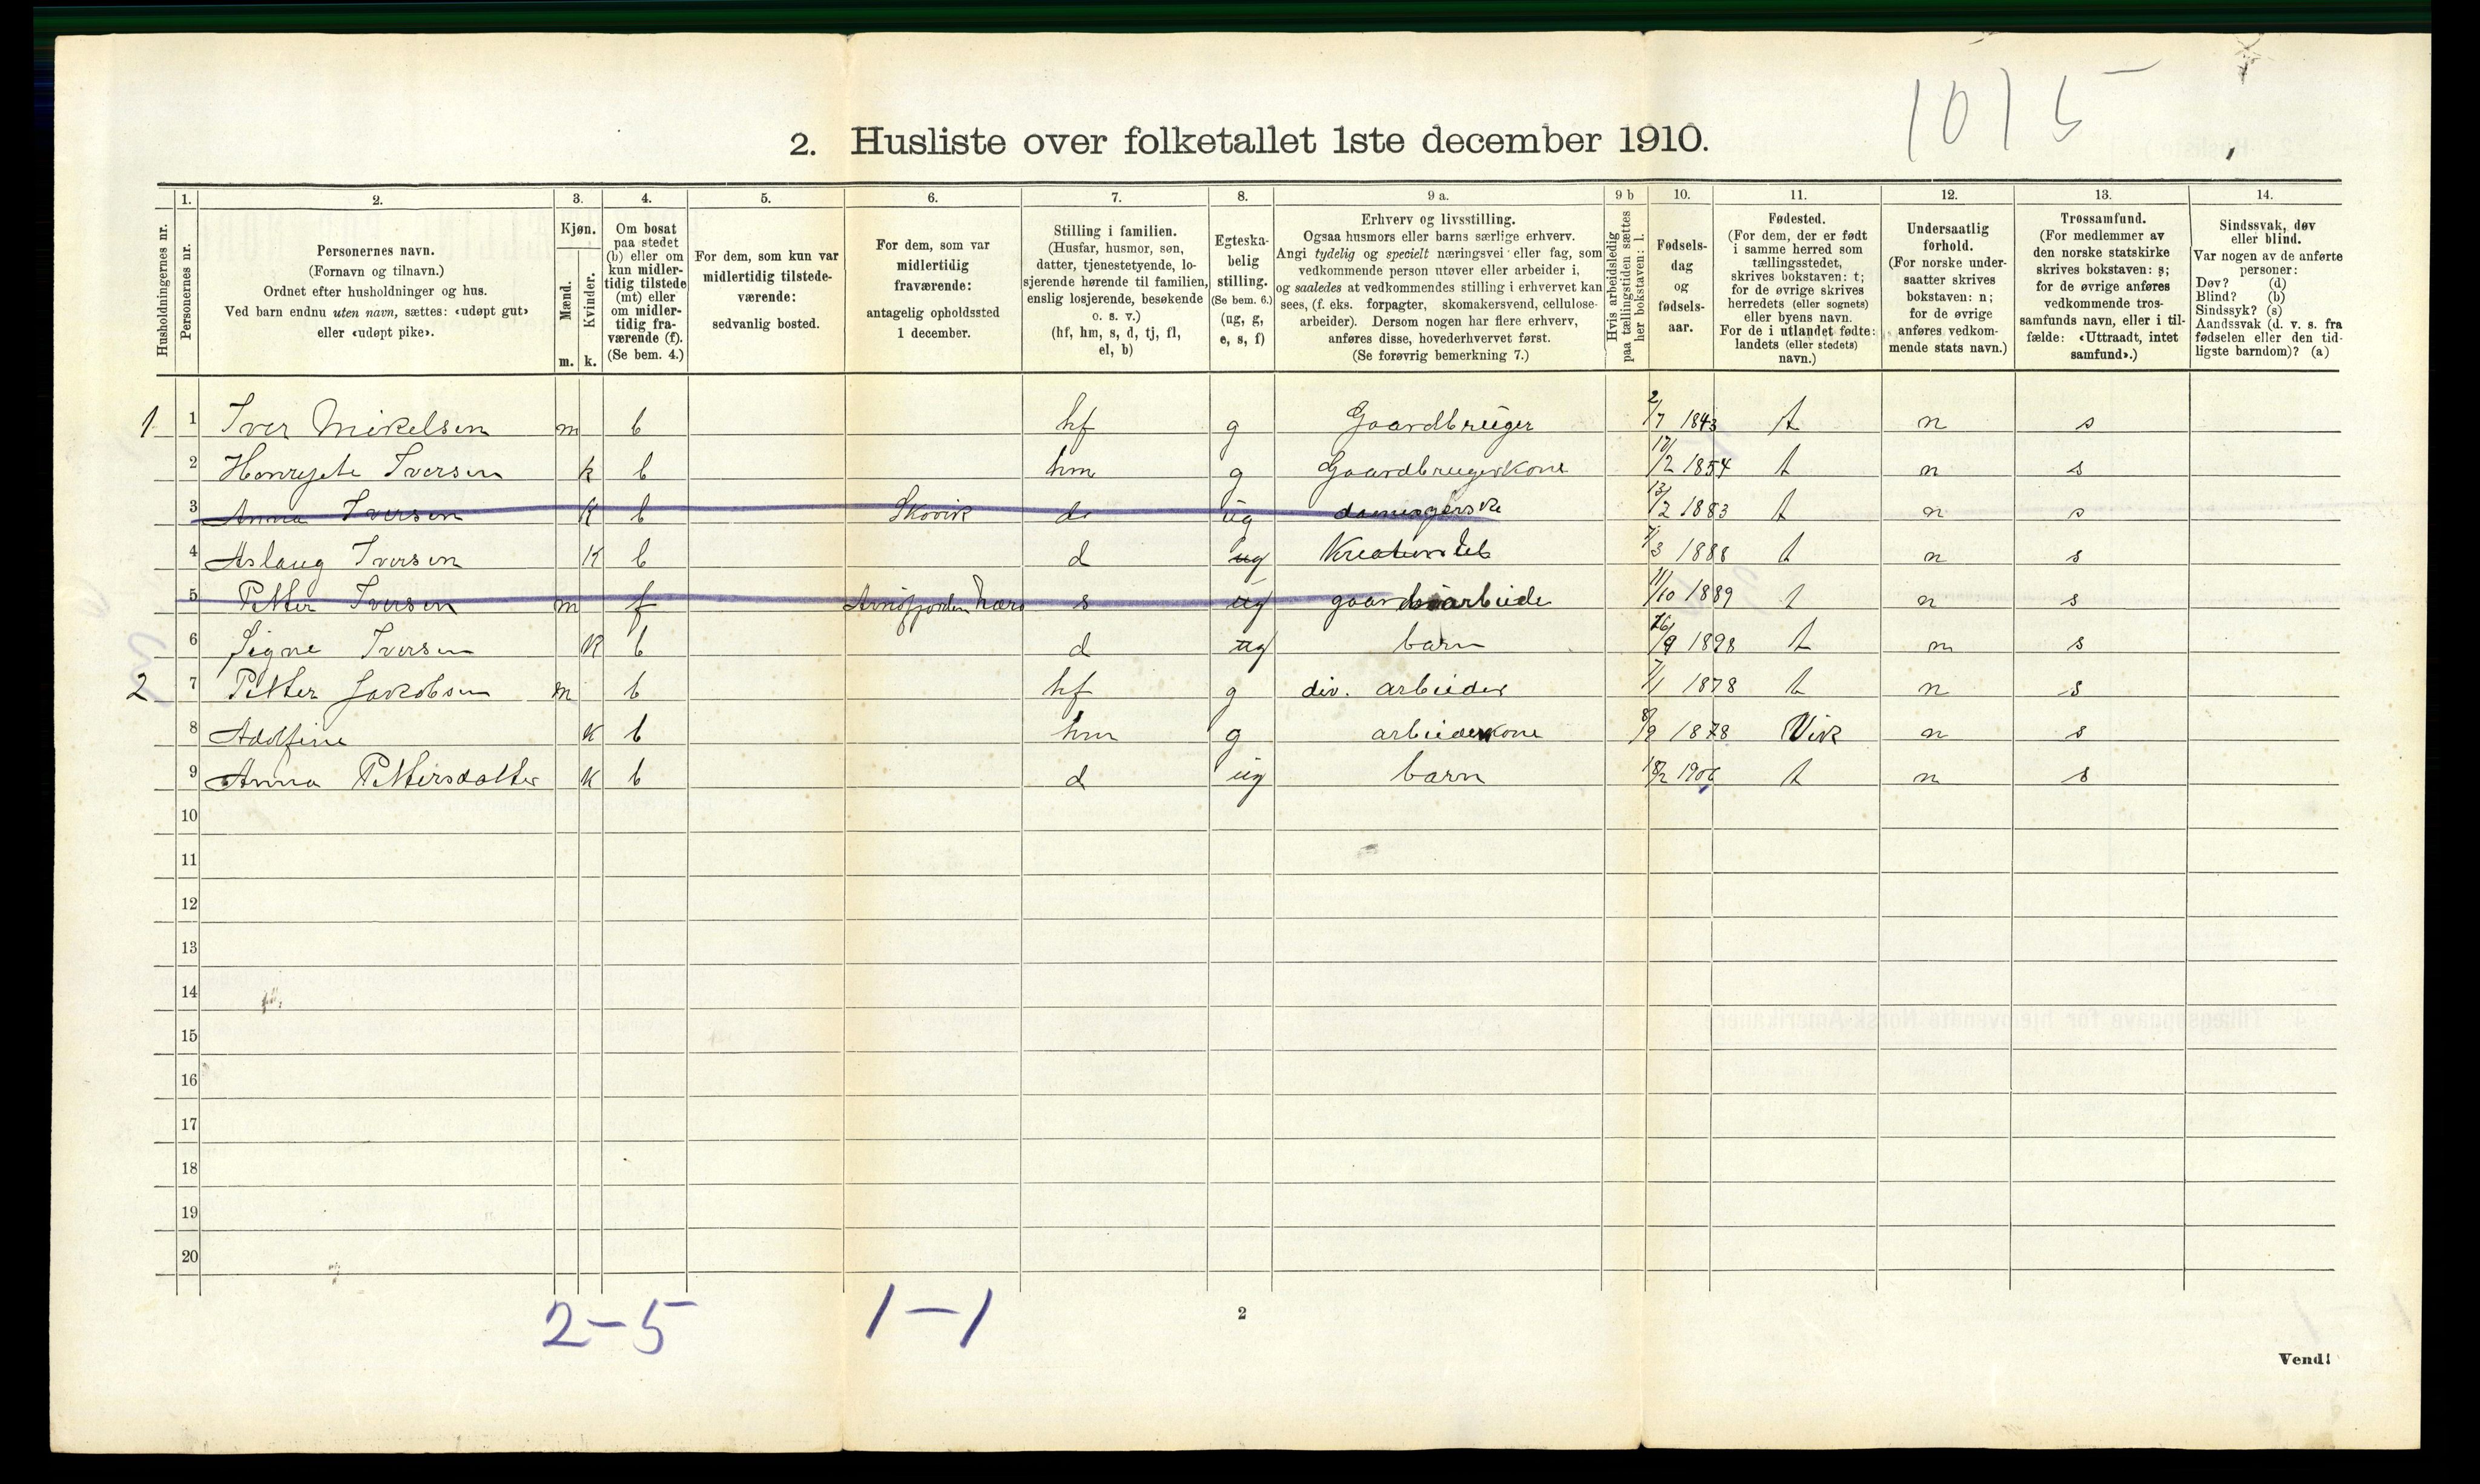 1015
2. Husliste over folketallet 1ste december 1910.
Husholdningernes nr.
1. Personernes nr.
2. Personernes navn. (Fornavn og tilnavn.) Ordnet efter husholdninger og hus. Ved barn endnu uten navn, sættes: «udøpt gut» eller «udøpt pike».
3. Kjøn. Mænd. m. Kvinder. k.
4. Om bosat paa stedet (b) eller om kun midlertidig tilstede (mt) eller om midlertidig fraværende (f). (Se bem. 4.)
5. For dem, som kun var midlertidig tilstedeværende: sedvanlig bosted.
6. For dem, som var midlertidig fraværende: antagelig opholdssted 1 december.
7. Stilling i familien. (Husfar, husmor, søn, datter, tjenestetyende, losjerende hørende til familien, enslig losjerende, besøkende o. s. v.) (hf, hm, s, d, tj, fl, el, b)
8. Egteskabelig stilling. (Se bem. 6.) (ug, g, e, s, f)
9 a. Erhverv og livsstilling. Ogsaa husmors eller barns særlige erhverv. Angi tydelig og specielt næringsvei eller fag, som vedkommende person utøver eller arbeider i, og saaledes at vedkommendes stilling i erhvervet kan sees, (f. eks. forpagter, skomakersvend, cellulosearbeider). Dersom nogen har flere erhverv, anføres disse, hovederhvervet først. (Se forøvrig bemerkning 7.)
9 b Hvis arbeidsledig paa tællingstiden sættes her bokstaven: l.
10. Fødselsdag og fødselsaar.
11. Fødested. (For dem, der er født i samme herred som tællingsstedet, skrives bokstaven: t; for de øvrige skrives herredets (eller sognets) eller byens navn. For de i utlandet fødte: landets (eller stedets) navn.)
12. Undersaatlig forhold. (For norske undersaatter skrives bokstaven: n; for de øvrige anføres vedkommende stats navn.)
13. Trossamfund. (For medlemmer av den norske statskirke skrives bokstaven: s; for de øvrige anføres vedkommende trossamfunds navn, eller i tilfælde: «Uttraadt, intet samfund».)
14. Sindssvak, døv eller blind. Var nogen av de anførte personer: Døv? (d) Blind? (b) Sindssyk? (s) Aandssvak (d. v. s. fra fødselen eller den tidligste barndom)? (a)
1 1 Iver Mikelsen m b hf g Gaardbruger 2/7 1843 t n s
2 Henrijete Iversen k b hm g Gaardbrugerkone 17/2 1854 t n s
3 Anna Iversen K b Skovik d ug 13/2 1883 t n s
4 Aslaug Iversen K b d ug Kreaturstel 7/3 1888 t n s
5 Petter Iversen m f Arnefjorden s ug gaardsarbeide 11/10 1889 t n s
6 Signe Iversen K b d ug barn 26/9 1898 t n s
2 7 Petter Jakobsen m b hf g div. arbeider 7/1 1878 t n s
8 Adolfine K b hm g arbeiderkone 8/9 1878 Vik n s
9 Anna Pettersdatter K b d ug barn 18/2 1906 t n s
10
11
12
13
14
15
16
17
18
19
20
2-5 1-1
2
Vend!